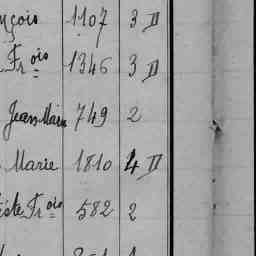 nçois 1107 3 D
Frois 1346 3 D
Jean Marie 749 2
Marie 1810 4 D
iste Frois 582 2